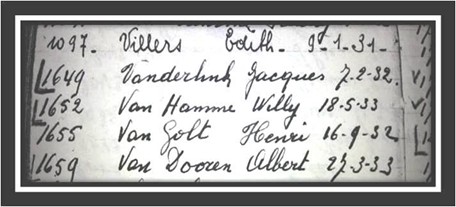 1097. Villers Edith - 9-1-31-
1649 Vanderlink Jacques 7-2-32.
1652 Van Hamme Willy 18-5-33
1655 Van Golt Henri 16-9-32
1659 Van Dooren Albert 27-3-33